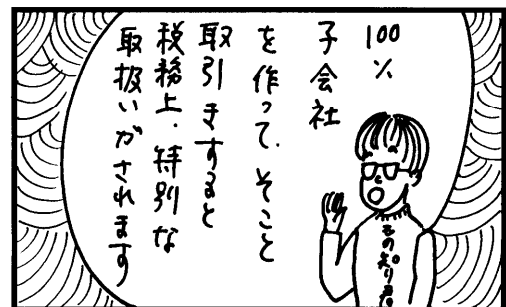 100%
子会社
を作って、そこと
取引きすると
税務上、特別な
取扱いがされます
もの知り君